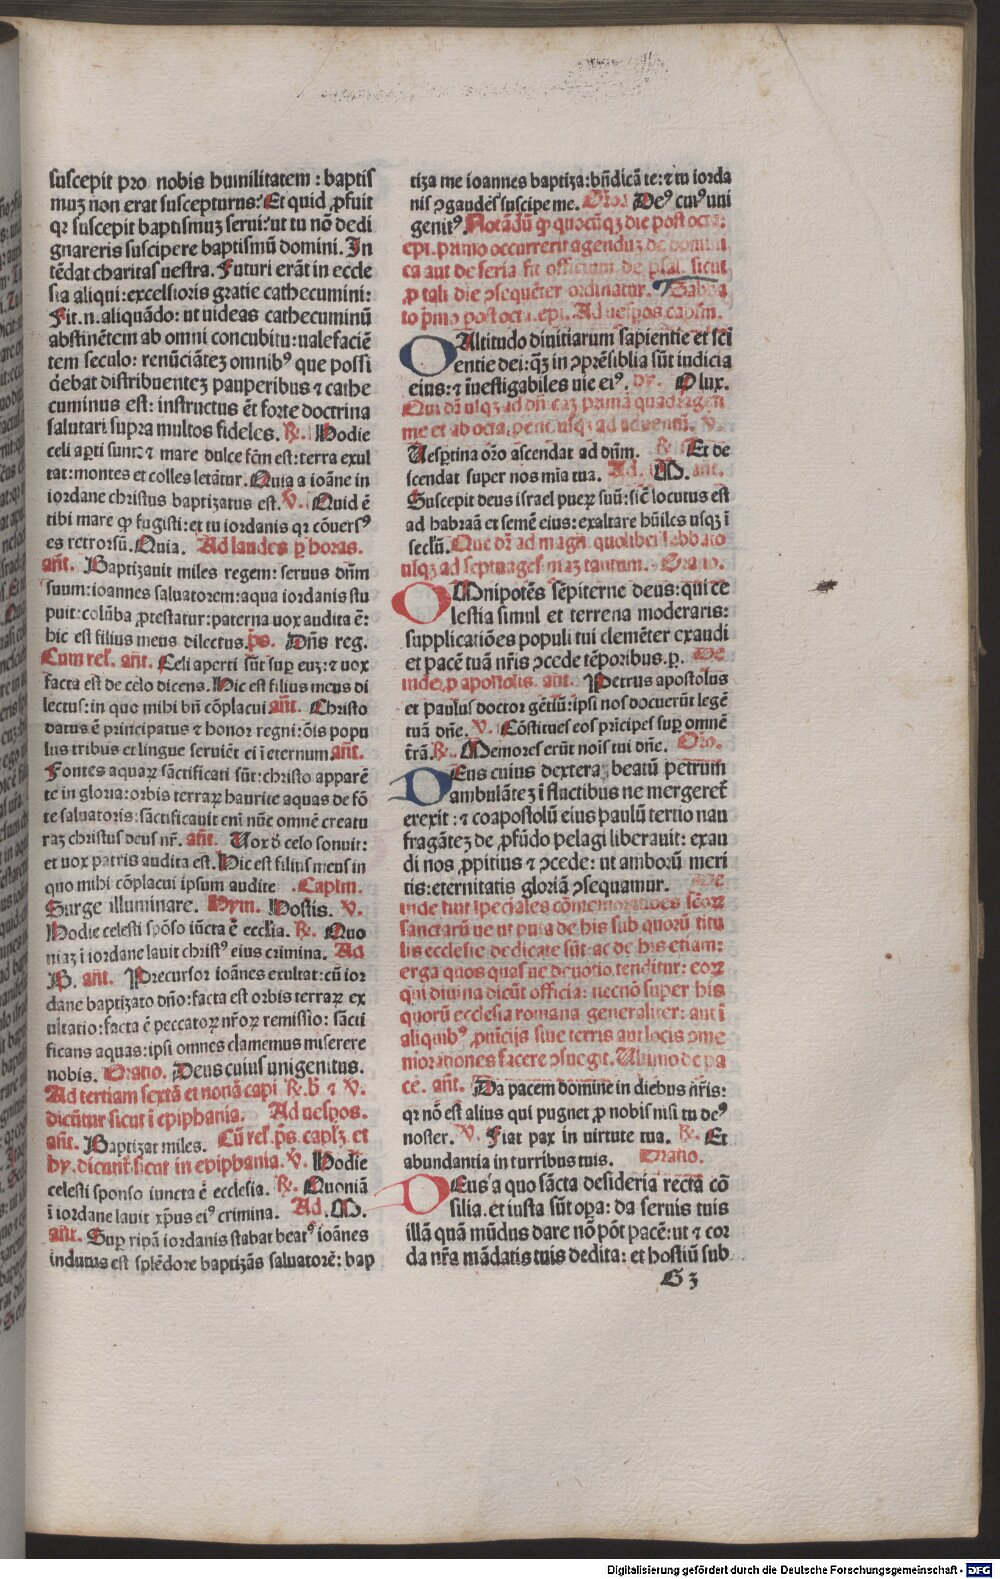 suscepit pro nobis humilitatem: baptis
muʒ non erat suscepturus: Et quid ꝓfuit
qꝛ suscepit baptismuʒ serui: ut tu nō dedi
gnareris suscipere baptismū domini. In
tēdat charitas uestra. Futuri erāt in eccle
sia aliqui: excelsioris gratie cathecumini:
Fit.n. aliquādo: ut uideas cathecuminū
abstinētem ab omni concubitu: ualefaciē
tem seculo: renūciāteʒ omnibꝰ que possi
debat distribuenteʒ pauperibus ⁊ cathe
cuminus est: instructus ēt forte doctrina
salutari supra multos fideles. ℟. Hodie
celi aꝑti sunt: ⁊ mare dulce fc̄m est: terra exul
tat: montes et colles letāt̄ur. Quia a ioāne in
iordane christus baptizatus est. ℣. Quid ē
tibi mare ꝙ fugisti: et tu iordanis qꝛ cōuersꝰ
es retrorsū. Quia. Ad laudes ⁊ ꝑ horas.
añt. Baptizauit miles regem: seruus dn̄m
suum: ioannes saluatorem: aqua iordanis stu
puit: colūba ꝓtestatur: paterna uox audita ē:
hic est filius meus dilectus. p̄s. Dn̄s reg.
Cum rel'. añt. Celi aperti sūt suꝑ euʒ: ⁊ uox
facta est de celo dicens. Hic est filius meus di
lectus: in quo mihi bn̄ cōplacui añt. Christo
datus ē principatus ⁊ honor regni: ōis popu
lus tribus et lingue seruiēt ei ī eternum. añt.
Fontes aquaꝝ sāctificati sūt: christo apparē
te in gloria: orbis terraꝝ haurite aquas de fō
te saluatoris: sāctificauit eni nūc omnē creatu
raʒ christus deus nr̄. añt. Uox d̄ celo sonuit:
et uox patris audita est. Hic est filius meus in
quo mihi cōplacui ipsum audite. Caplm̄.
Surge illuminare. Hym. Hostis. ℣.
Hodie celesti spōso iūcta ē eccl'ia. ℟. Quo
niaʒ ī iordane lauit christꝰ eius crimina. Ad
B. añt. Precursor ioānes exultat: cū ior
dane baptizato dn̄o: facta est orbis terraꝝ ex
ultatio: facta ē peccatoꝝ nr̄oꝝ remissio: sācti
ficans aquas: ipsi omnes clamemus miserere
nobis. Oratio. Deus cuius unigenitus.
Ad tertiam sextā et nonā capi ℟. b̄ ⁊ ℣.
dicūtur sicut ī epiphania. Ad uesꝑos.
añt. Baptizat miles. Cū rel'. p̄s. capl'ʒ. et
hy. dicunt̄ sicut in epiphania. ℣. Hodie
celesti sponso iuncta ē ecclesia. ℟. Quoniā
ī iordane lauit xp̄us eiꝰ crimina. Ad. M.
añt. Suꝑ ripā iordanis stabat beatꝰ ioānes
indutus est splēdore baptizās saluatorē: bap
tiza me ioannes baptiza: bn̄dicā te: ⁊ tu iorda
nis ꝯgaudēs suscipe me. Oro. Deꝰ cuiꝰ uni
genitꝰ. Notādū ꝙ quocūqʒ die post octa:
epi. primo occurrerit agenduʒ de domini
ca aut de feria fit officium de psal. sicut
ꝓ tali die ꝯsequēter ordinatur. Sabba
to p̄mo post octa. epi. Ad uesꝑos caplm̄.
O Altitudo diuitiarum sapientie et sci
entie dei: q̄ʒ in ꝯprēsiblia sūt iudicia
eius: ⁊ īuestigabiles uie eiꝰ. hy. O lux.
Qui dr̄ usqʒ ad dn̄caʒ primā quadragesi
me et ab octa. pent. usqʒ ad aduentū. ℣.
Uesꝑtina ōro ascendat ad dn̄m. ℟. Et de
scendat super nos mīa tua. Ad. M. añt.
Suscepit deus israel pueꝝ suū: sic̄ locutus est
ad habraā et semē eius: exaltare hūiles usqʒ ī
secl'ū. Que dr̄ ad magn̄. quolibet sabbato
usqʒ ad septuagesimaʒ tantum. Oratio.
OMnipotēs sēpiterne deus: qui ce
lestia simul et terrena moderaris:
supplicatiōes populi tui clemēter exaudi
et pacē tuā nr̄is ꝯcede tēporibus. ꝑ. De
inde ꝓ apostolis. añt. Petrus apostolus
et paulus doctor gētiū: ipsi nos docuerūt legē
tuā dn̄e. ℣. Cōstitues eos pricipes suꝑ omnē
tr̄ā. ℟. Memores erūt nois tui dn̄e. Oro.
DEus cuius dextera beatū petrum
ambulāteʒ ī fluctibus ne mergeret̄
erexit: ⁊ coapostolū eius paulū tertio nau
fragāteʒ de ꝓfūdo pelagi liberauit: exau
di nos ꝓpitius ⁊ ꝯcede: ut amborū meri
tis: eternitatis gloriā ꝯsequamur. De
inde fiut speciales cōmemorationes sc̄oꝝ
sanctarū ue ut puta de his sub quorū titu
lis ecclesie dedicate sūt: ac de his etiam:
erga quos quas ue deuotio tenditur: eoꝝ
qui diuina dicūt officia: necnō super his
quorū ecclesia romana generaliter: aut ī
aliquibꝰ ꝓuicijs siue terris aut locis ꝯme
morationes facere ꝯsueuit. Ultimo de pa
ce. añt. Da pacem domine in diebus nr̄is:
qꝛ nō est alius qui pugnet ꝓ nobis nisi tu deꝰ
noster. ℣. Fiat pax in uirtute tua. ℟. Et
abundantia in turribus tuis. Oratio.
DEus a quo sācta desideria recta cō
silia. et iusta sūt oꝑa: da seruis tuis
illā quā mūdus dare nō pōt pacē: ut ⁊ cor
da nr̄a mādatis tuis dedita: et hostiū sub
G 3
Digitalisierung gefördert durch die Deutsche Forschungsgemeinschaft - DFG